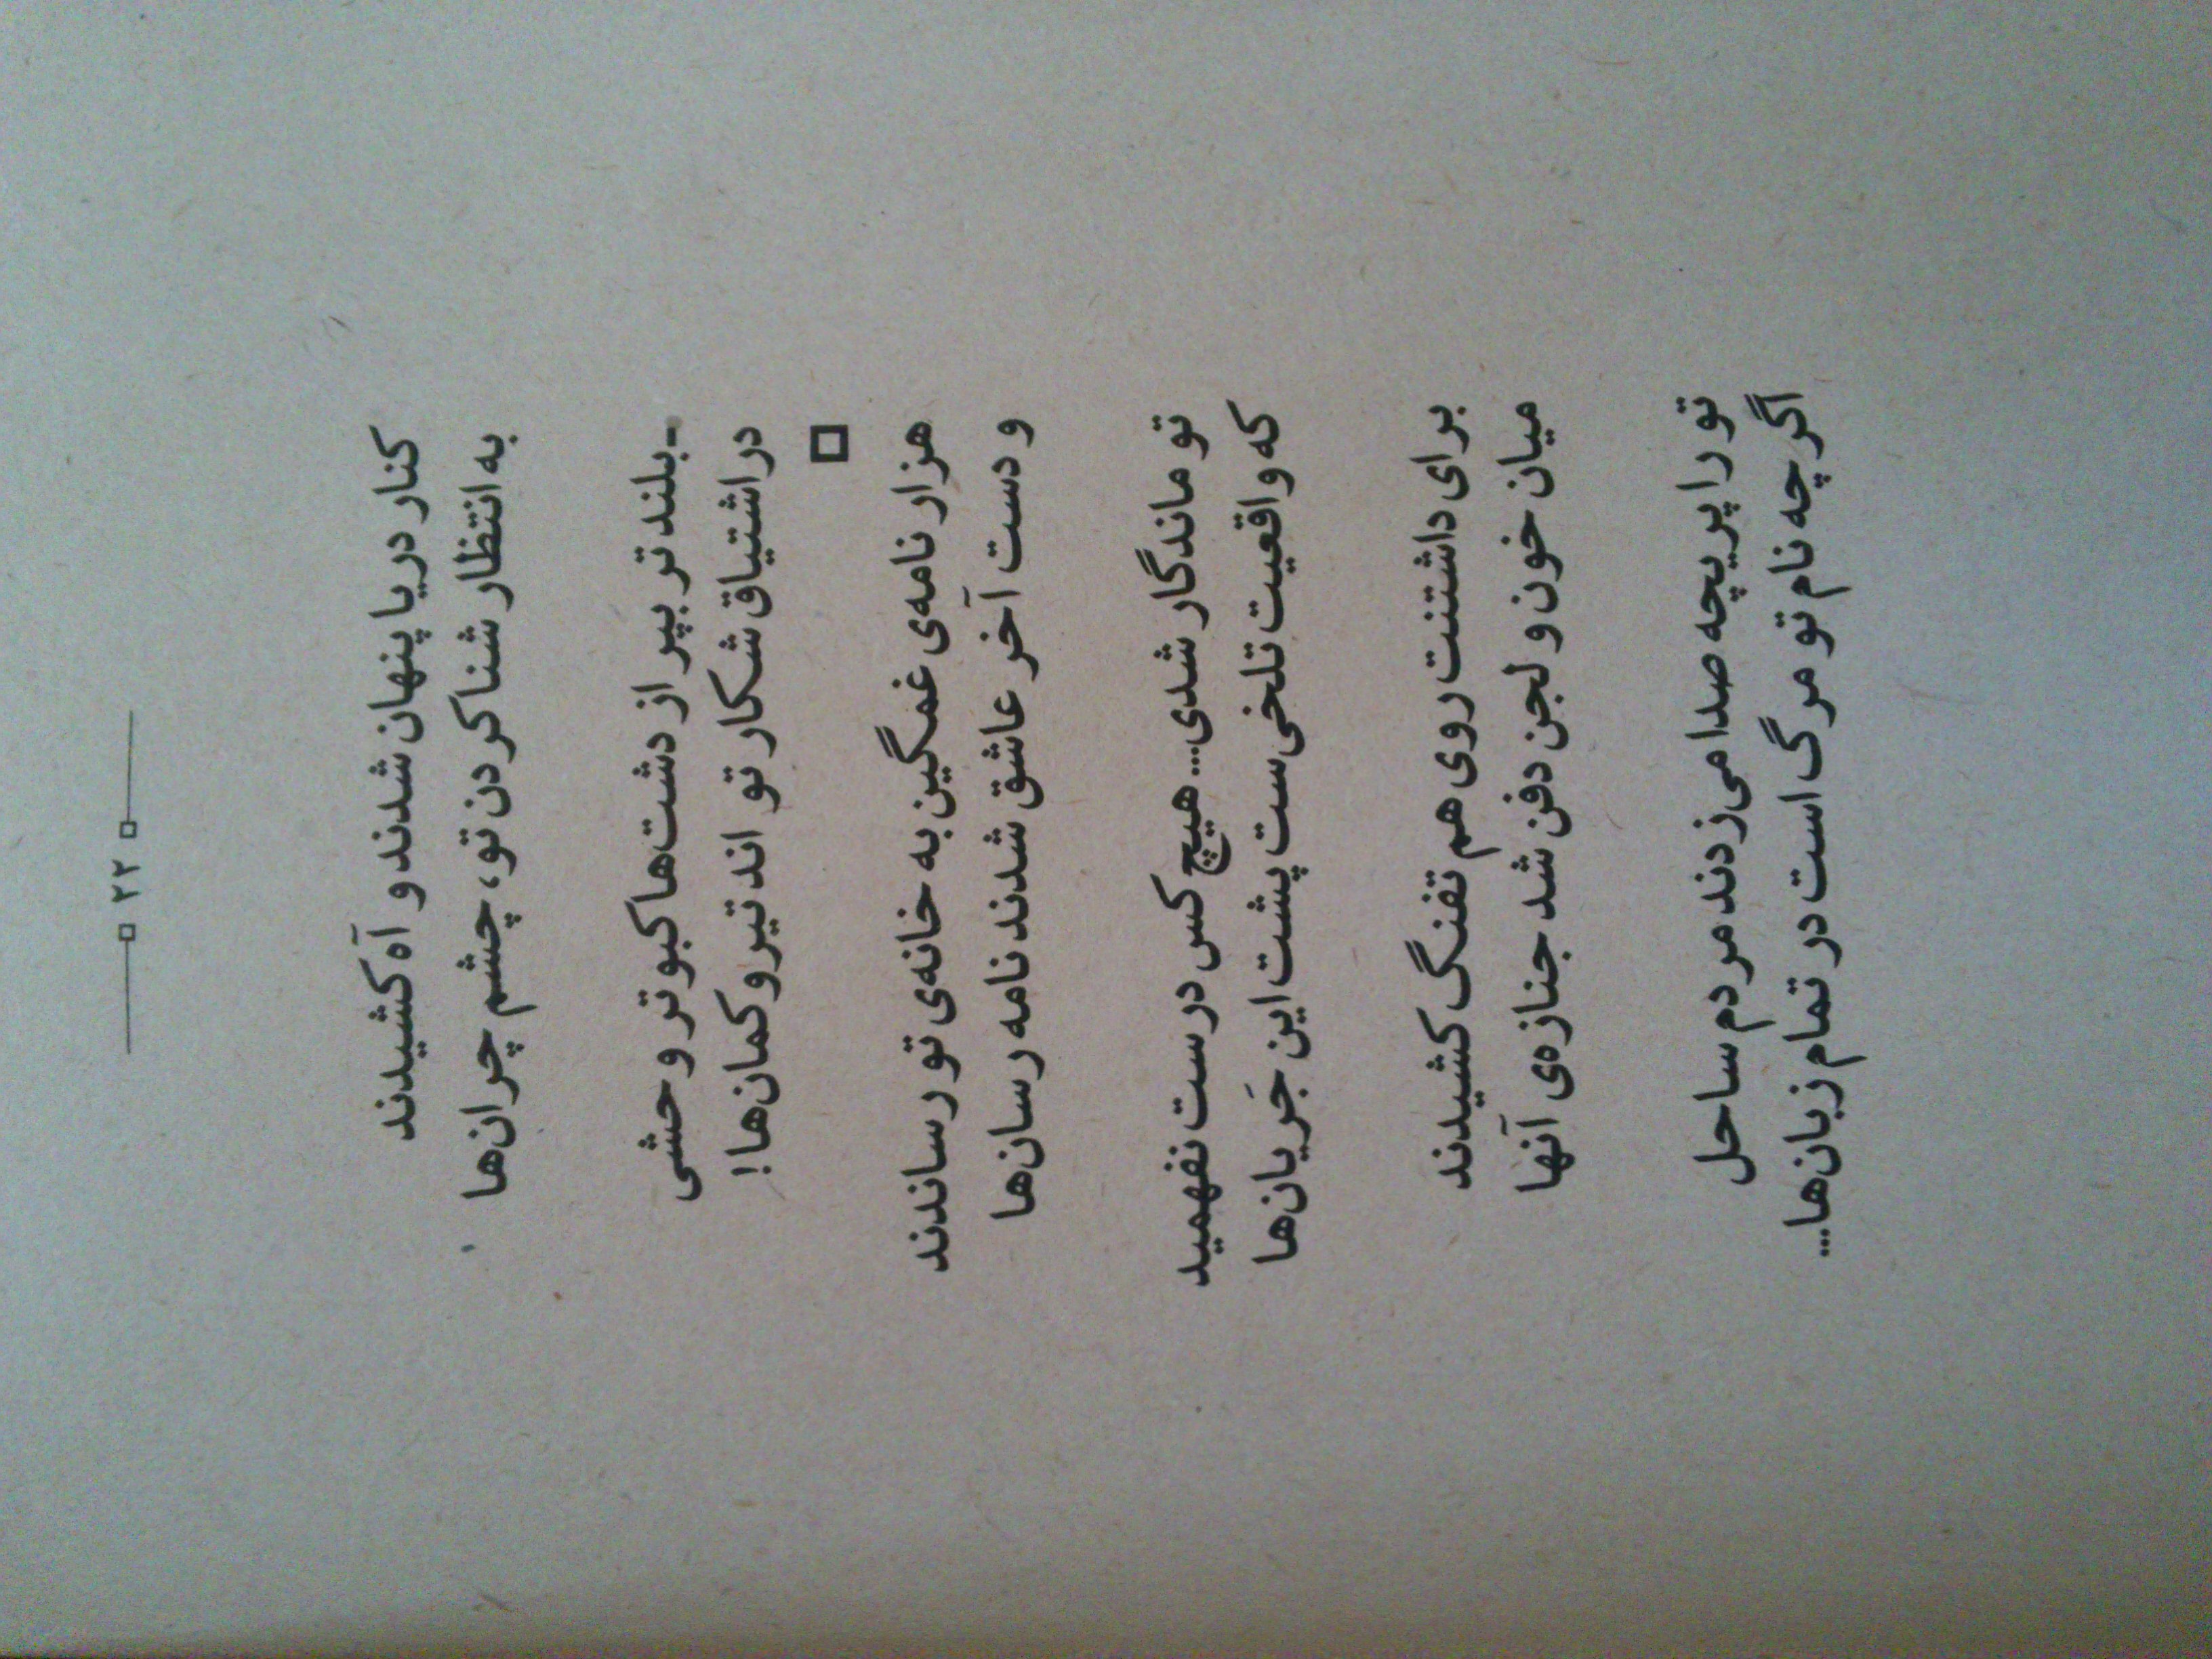 ۲۲
کنار دریا پنهان شدند و آه کشیدند
به انتظار شنا کردن تو، چشم چران‌ها
-بلند تر بپر از دشت‌ها کبوتر وحشی
در اشتیاق شکار تو اند تیر و کمان‌ها!
هزار نامه‌ی غمگین به خانه‌ی تو رساندند
و دست آخر عاشق شدند نامه رسان‌ها
تو ماندگار شدی... هیچ کس درست نفهمید
که واقعیت تلخی‌ست پشت این جَریان‌ها
برای داشتنت روی هم تفنگ کشیدند
میان خون و لجن دفن شد جنازه‌ی آنها
تو را پریچه صدا می‌زدند مردم ساحل
اگر چه نام تو مرگ است در تمام زبان‌ها...